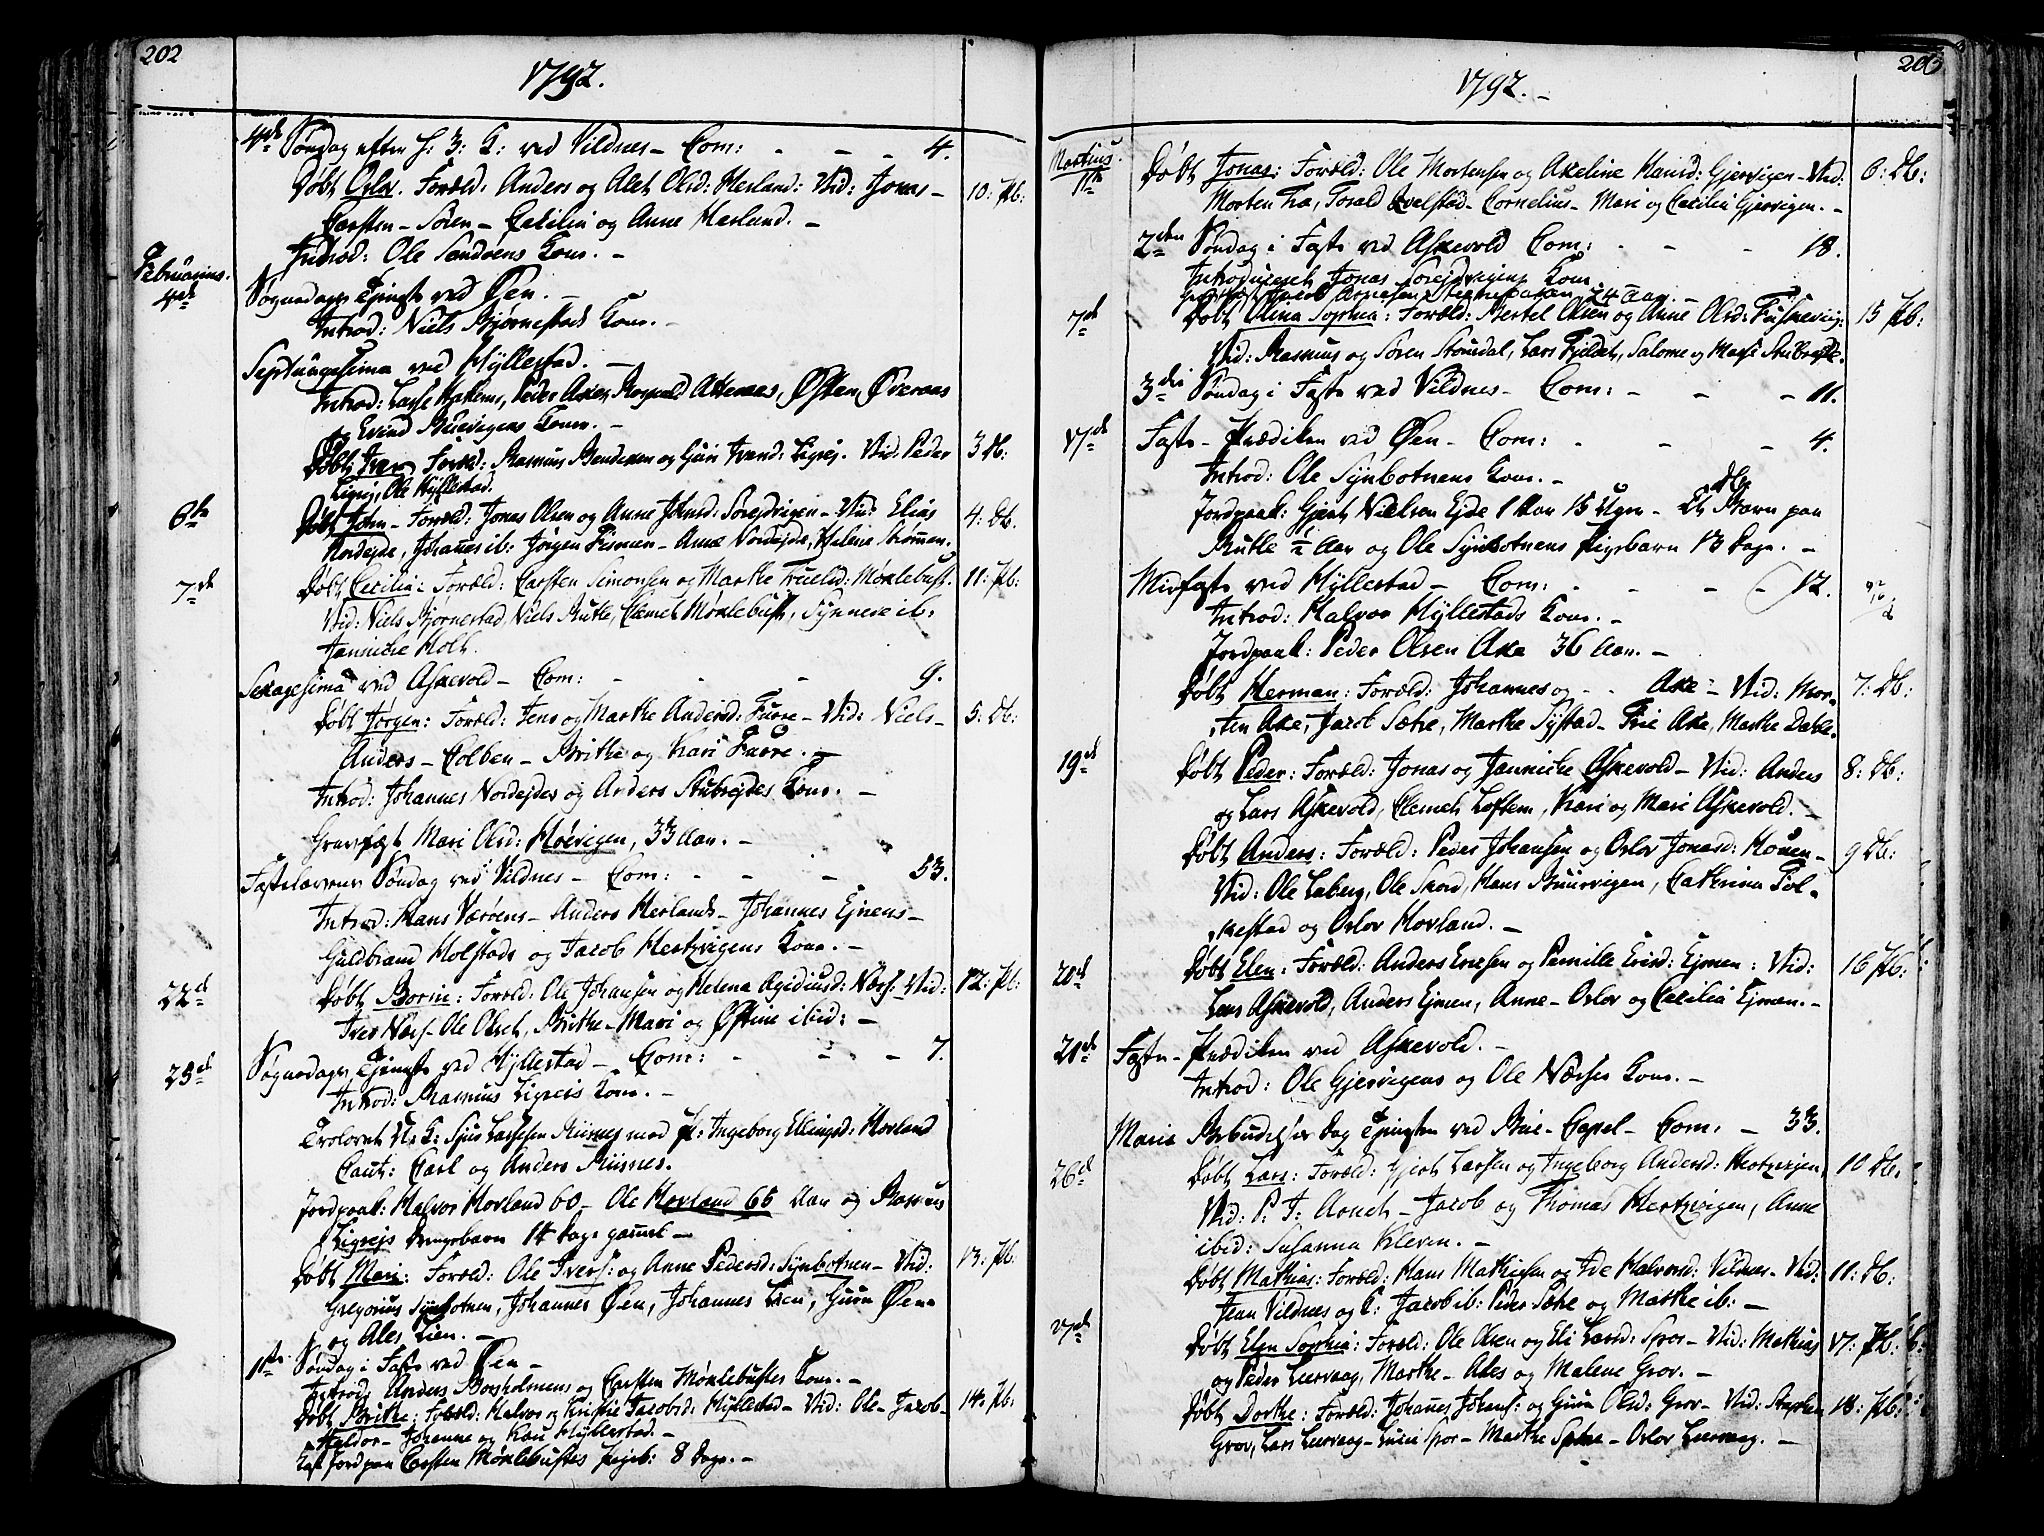 202
1792.
4de Søndag efter H: 3: K: ved Vildnes - Com: - - - 4.
Døbt Orlov. Foræld: Anders og Alet Olsd: Herland: Vid: Jonas - 10: Pb:
Carsten - Sören - Cecilia og Anne Herland. -
Introd: Ole Sandøens Kone. -
Februarius.
4de Søgnedags Tjeneste ved Øen. -
Introd: Niels Bjørnestad Kone. -
Septuagesima ved Hyllestad. -
Introd: Lasse Hakems, Peder Akes, Rognald Attenaas, Østen Øveraas
og Evind Buevigens Koner. -
Døbt Iver Foræld: Rasmus Bendixen og Guri Iversd: Ligrej. Vid: Peder 3 Db:
Ligrej, Ole Hyllestad.
6te Døbt John - Foræld: Jonas Olsen og Anne Johnsd: Sørejdvigen - Vid: Elias 4: Db.
Nordejde, Johannes ib: Jörgen Fismen - Anna Nordejde, Helene Strømmen.
7de Døbt Cecilia: Foræld: Carsten Simonsen og Marthe Truelsd: Møklebust. 11: Pb:
Vid: Niels Bjørnestad, Niels Rutle, Clemet Møklebust, Synneve ib:
Jannicke Holt.
Sexagesima ved Askevold - Com: - - - 9.
Døbt Jørgen: Foræld: Jens og Marthe Andersd: Furre - Vid: Niels - 5: Db:
Anders - Colben - Brithe og Kari Furre. -
Introd: Johannes Nordejdes og Anders Stubsejdes Kone. -
Gravfæst Mari Olsd: Høevigen, 33 Aar. -
Fastelavens Søndag ved Vildnes - Com: - - - 53.
Introd: Hans Værøens - Anders Herlands - Johannes Ejnens -
Guldbrand Holstads og Jacob Hertzvigens Kone. -
22de Døbt Borni: Foræld: Ole Johansen og Helena Agidiusd: Næss - Vid: 12: Pb:
Iver Næss - Ole Olset, Brithe - Mari og Østine ibid: -
23de Søgnedags Tjeneste ved Hyllestad - Com: - - - 7.
Introd: Rasmus Ligrejs Kone. -
Trolovet U: K: Sjus Lassesen Risnes med P: Ingeborg Ellingsd: Hovland
Caut: Carl og Anders Risnes.
Jordpaak: Halvor Hovland 60 - Ole Hovland 65 Aar og Rasmus
Ligrejs Drengebarn 14 Dage gammel -
Døbt Mari: Foræld: Ole Ivers: og Anne Pedersd: Synbotnen - Vid: 13: Pb:
Gregorius Synbotnen, Johannes Øen, Johannes Lien, Guru Øen
og Ales Lien. -
1ste Søndag i Faste ved Øen -
Introd: Anders Borsholmens og Carsten Møklebustes Kone. -
Døbt Brithe: Foræld: Halvor og Kristie Jacobsd: Hyllestad - Vid: Ole - Jacob - 14: Pb:
Haldor - Johanne og Kari Hyllestad. -
Kast Jord paa Carsten Møklebustes Pigeb: 8 Dage. -
203
1792. -
Martius.
1te Døbt Jonas: Foræld: Ole Mortensen og Axeline Hansd: Gjervigen - Vid: 6: Db:
Morten Træ, Torald Qvelstad - Cornelius - Mari og Cecilia Gjervigen. -
2den Søndag i Faste ved Askevold Com: - - - 18.
Introduceret Jonas Sørejdvigens Kone
Jacob Arnesen 24 Aar. -
7de Døbt Olina Sophia: Foræld: Bertel Olsen og Anne Olsd: Fiiskevig: 15 Pb:
Vid: Rasmus og Sören Stensdal, Lars Fieldet, Salome og Mari Stubsejde.
3die Søndag i Faste ved Vildnes - Com: - - - 11.
17de Faste - Prædiken ved Øen - Com: - - - 4.
Introd: Ole Synbotnens Kone. -
Jordpaak: Gjert Nielsen Ejde 1 Aar 15 Uger - Et Barn paa
Rutle 1/2 Aar og Ole Synbotnens Pigebarn 13 Dage. -
Midfaste ved Hyllestad - Com: - - - 12.
Introd: Halvor Hyllestads Kone. -
Jordpaak: Peder Olsen Ake 36 Aar. -
Døbt Herman: Foræld: Johannes og - - Ake - Vid: Mor- 7: Db:
ten Ake, Jacob Sætre, Marthe Systad - Trie Ake, Marthe Dale.
19de Døbt Peder: Foræld: Jonas og Jannicke Askevold - Vid: Anders 8: Db:
og Lars Askevold, Clemet Loftem, Kari og Mari Askevold. -
Døbt Anders: Foræld: Peder Johansen og Orlov Jonasd: Houen - 9 Db:
Vid: Ole Laberg, Ole Skord, Hans Buurvigen, Cathrina Tol-
kestad og Orlov Hovland. -
20de Døbt Elen: Foræld: Anders Ericsen og Pernille Ericsd: Ejmen: Vid: 16 Pb:
Lars Askevold, Anders Ejmen, Anne - Orlov og Cecilia Ejmen. -
21de Faste - Prædiken ved Askevold. -
Introd: Ole Gjervigens og Ole Næsses Kone. -
Maria Bebudelses Dag Tjenesten ved Bue - Capel - Com: - 33.
26de Døbt Lars: Foræld: Gjert Larsen og Ingeborg Andersd: Hertzvigen, 10 Db:
Vid: P: T: Arnet - Jacob og Thomas Hertzvigen, Anne
ibid: Susanna Kleven. -
Døbt Mathias: Foræld: Hans Mathiesen og Ade Halvorsd: Vildnes - Vid: 11: Db:
Jean Vildnes og K: Jacob ib: Peder Sætre og Marthe ib: -
27de Døbt Elen Sophia: Foræld: Ole Olsen og Eli Larsd: Spor - Vid: Mathias 17: Pb:
og Peder Leervaag, Marthe - Ales og Malene Grov. -
Døbt Dorthe: Foræld: Johannes Johans: og Guru Olsd: Grov - Vid: Stephen 18: Pb:
Grov, Lars Leervaag - Lucie Spor - Marthe - Orlov Leervaag. -